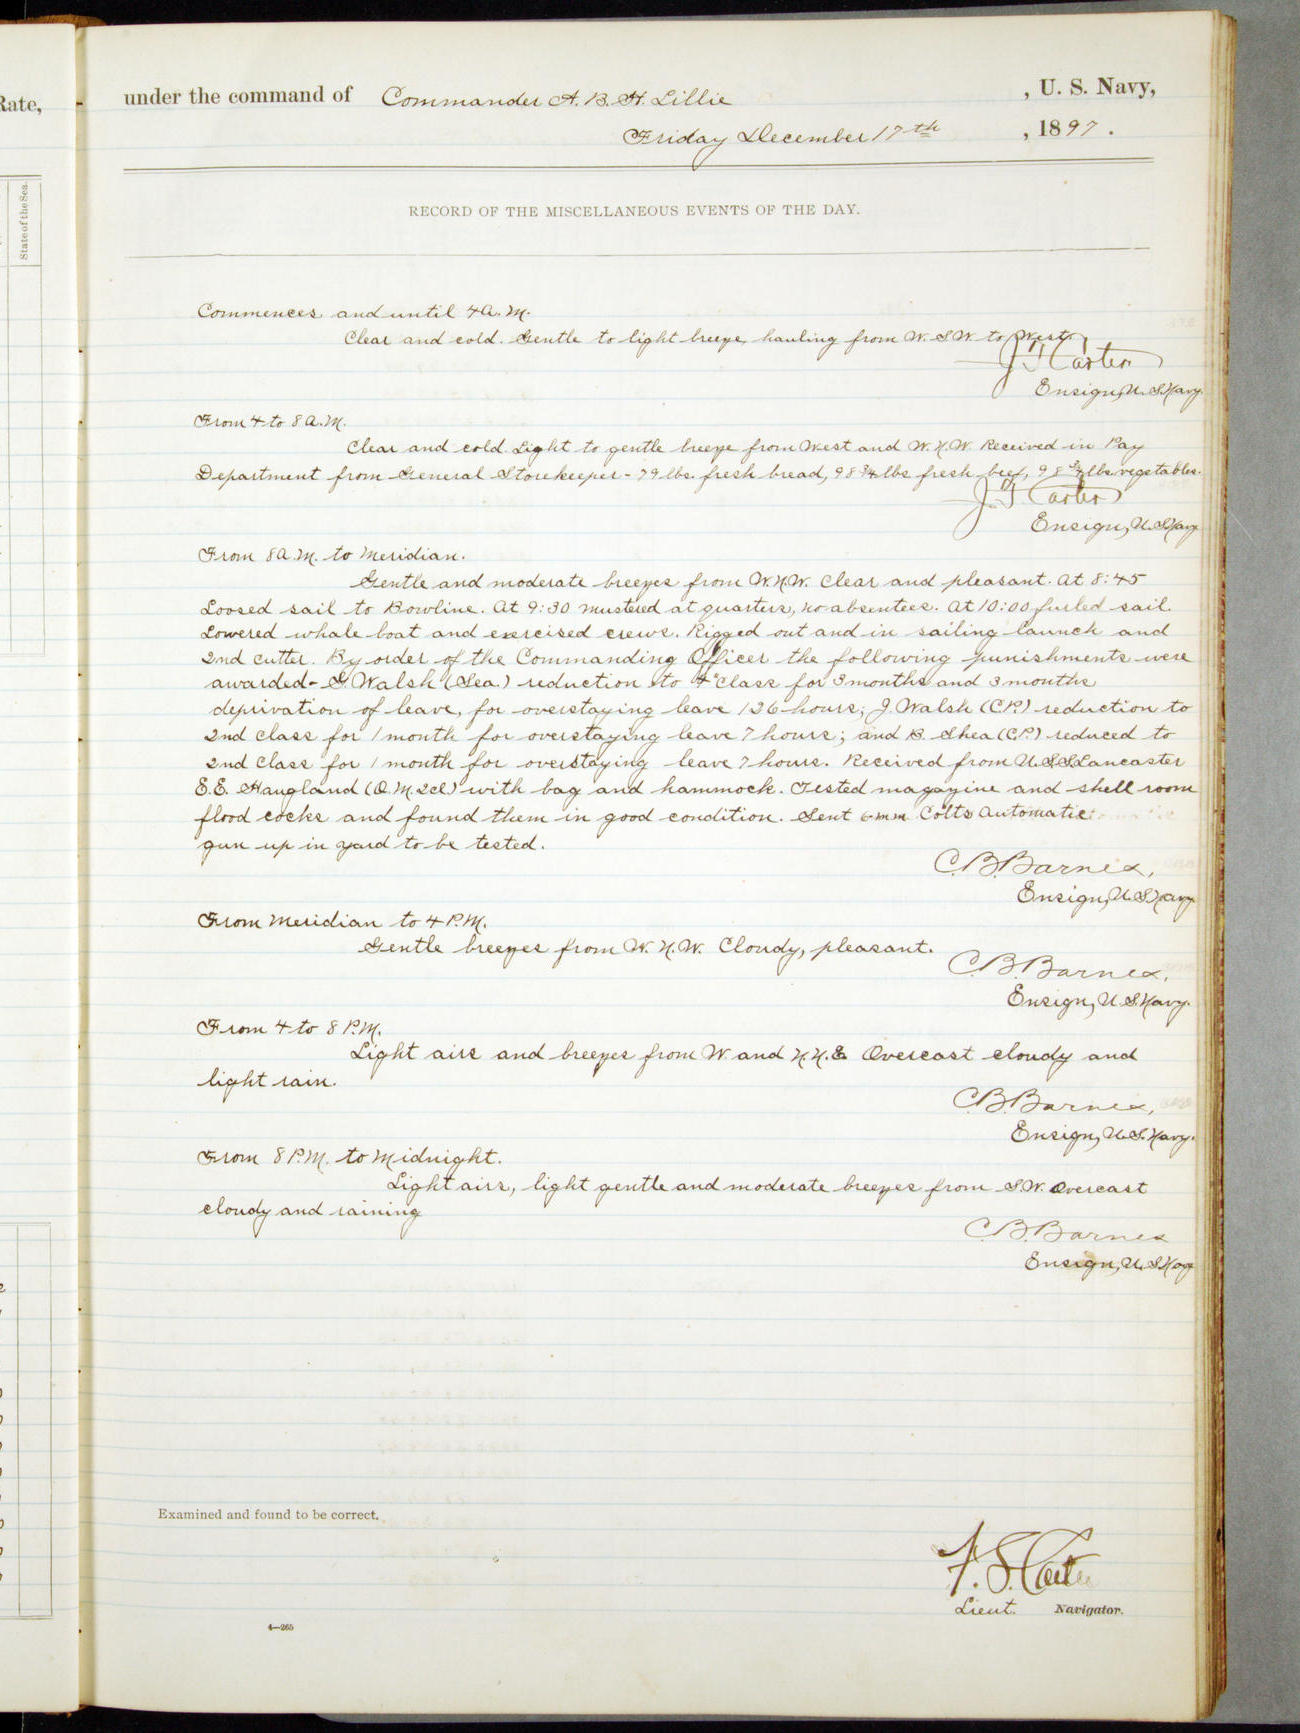 Rate,
State of the Sea.
under the command of Commander A. B. H. Lillie , U. S. Navy,
Friday December 17th , 1897.
RECORD OF THE MISCELLANEOUS EVENTS OF THE DAY.
Commences and until 4 A.M.
Clear and cold. Gentle to light breeze, hauling from W.S.W. to West.
Carter
Ensign, U.S. Navy.
From 4 to 8 A.M.
Clear and cold. Light to gentle breeze from West and W.N.W. Received in Pay
Department from General Storekeeper - 79 lbs. fresh bread, 98 3/4 lbs fresh beef, 98 3/4 lbs vegetables.
Carter
Ensign, U.S. Navy
From 8 A.M. to Meridian.
Gentle and moderate breezes from W.N.W. Clear and pleasant. At 8:45
Loosed sail to Bowline. At 9:30 mustered at quarters, no absentees. At 10:00 furled sail.
Lowered whale boat and exercised crews. Rigged out and in sailing launch and
2nd cutter. By order of the Commanding Officer the following punishments were
awarded - G. Walsh (Sea.) reduction to 4th Class for 3 months and 3 months
deprivation of leave, for overstaying leave 126 hours; J. Walsh (C.P.) reduction to
2nd Class for 1 month for overstaying leave 7 hours; and B. Shea (C.P.) reduced to
2nd Class for 1 month for overstaying leave 7 hours. Received from U.S.S. Lancaster
E.E. Haugland (Q.M. 2cl) with bag and hammock. Tested magazine and shell room
flood cocks and found them in good condition. Sent 6 mm Colts Automatic
gun up in yard to be tested.
C.B. Barnes,
Ensign, U.S. Navy
From Meridian to 4 P.M.
Gentle breezes from W.N.W. Cloudy, pleasant.
C.B. Barnes,
Ensign, U.S. Navy.
From 4 to 8 P.M.
Light airs and breezes from W and N.N.E. Overcast cloudy and
light rain.
C.B. Barnes,
Ensign, U.S. Navy.
From 8 P.M. to Midnight.
Light airs, light gentle and moderate breezes from S.W. Overcast
cloudy and raining
C.B. Barnes
Ensign, U.S. Navy
Examined and found to be correct.
Lieut. Navigator.
4—265